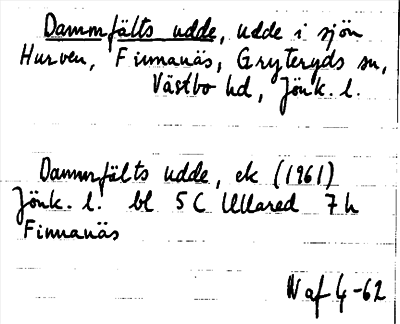 Dammfälts udde, udde i sjön
Hurven, Finnanäs, Gryteryds sn,
Västbo hd, Jönk. l.
Dammfälts udde, ek (1961)
Jönk. l. bl 5C Ullared 7h
Finnanäs
N af 4-62